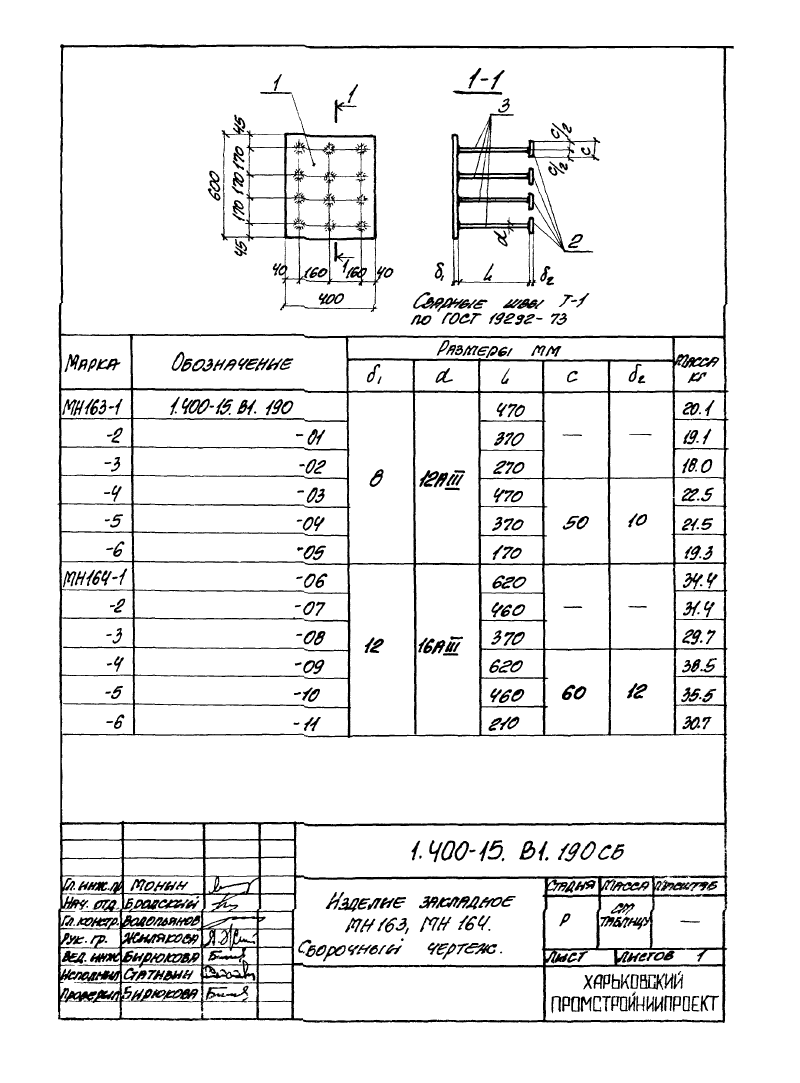 1
1
1-1
3
c/2
c
c/2
45
170
170
170
45
600
d
2
40
160
1
160
40
400
δ1
L
δ2
Сварные швы Т-1
по ГОСТ 19292-73
Марка
Обозначение
Размеры мм
Масса кг
δ1 d L c δ2
МН163-1 1.400-15.В1.190 470 20.1
-2 -01 370 — — 19.1
-3 -02 8 12АIII 270 18.0
-4 -03 470 22.5
-5 -04 370 50 10 21.5
-6 -05 170 19.3
МН164-1 -06 620 34.4
-2 -07 460 — — 31.4
-3 -08 12 16АIII 370 29.7
-4 -09 620 38.5
-5 -10 460 60 12 35.5
-6 -11 210 30.7
1.400-15. В1.190СБ
Гл. инж. пр Монин
Нач. отд. Бродский
Гл. констр. Водопьянов
Рук. гр. Жилякова
Вед. инж Бирюкова
Исполнил Статнвин
Проверил Бирюкова
Изделие закладное
МН163, МН 164.
Сборочный чертеж.
Стадия Масса Масштаб
Р см. таблицу —
Лист Листов 1
ХАРЬКОВСКИЙ
ПРОМСТРОЙНИИПРОЕКТ